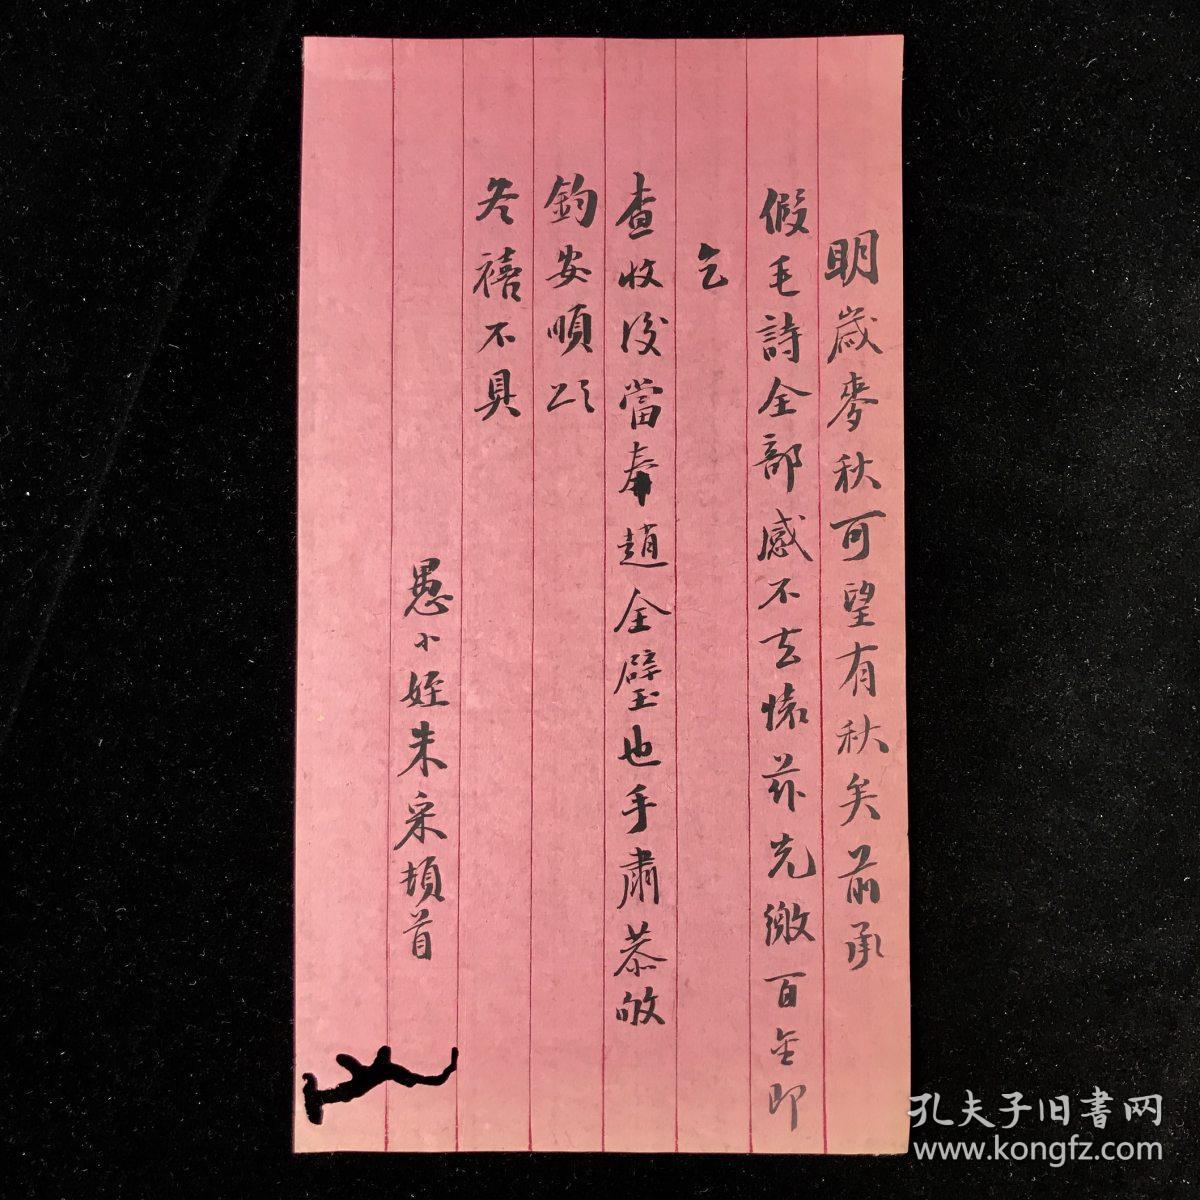 明歲麥秋可望有秋矣前承
假毛詩全部感不去懷茲先繳百金即
乞
查收後當奉趙全璧也手肅恭敂
鈞安順頌
冬禧不具
愚小姪朱采頓首
孔夫子旧書网
www.kongfz.com